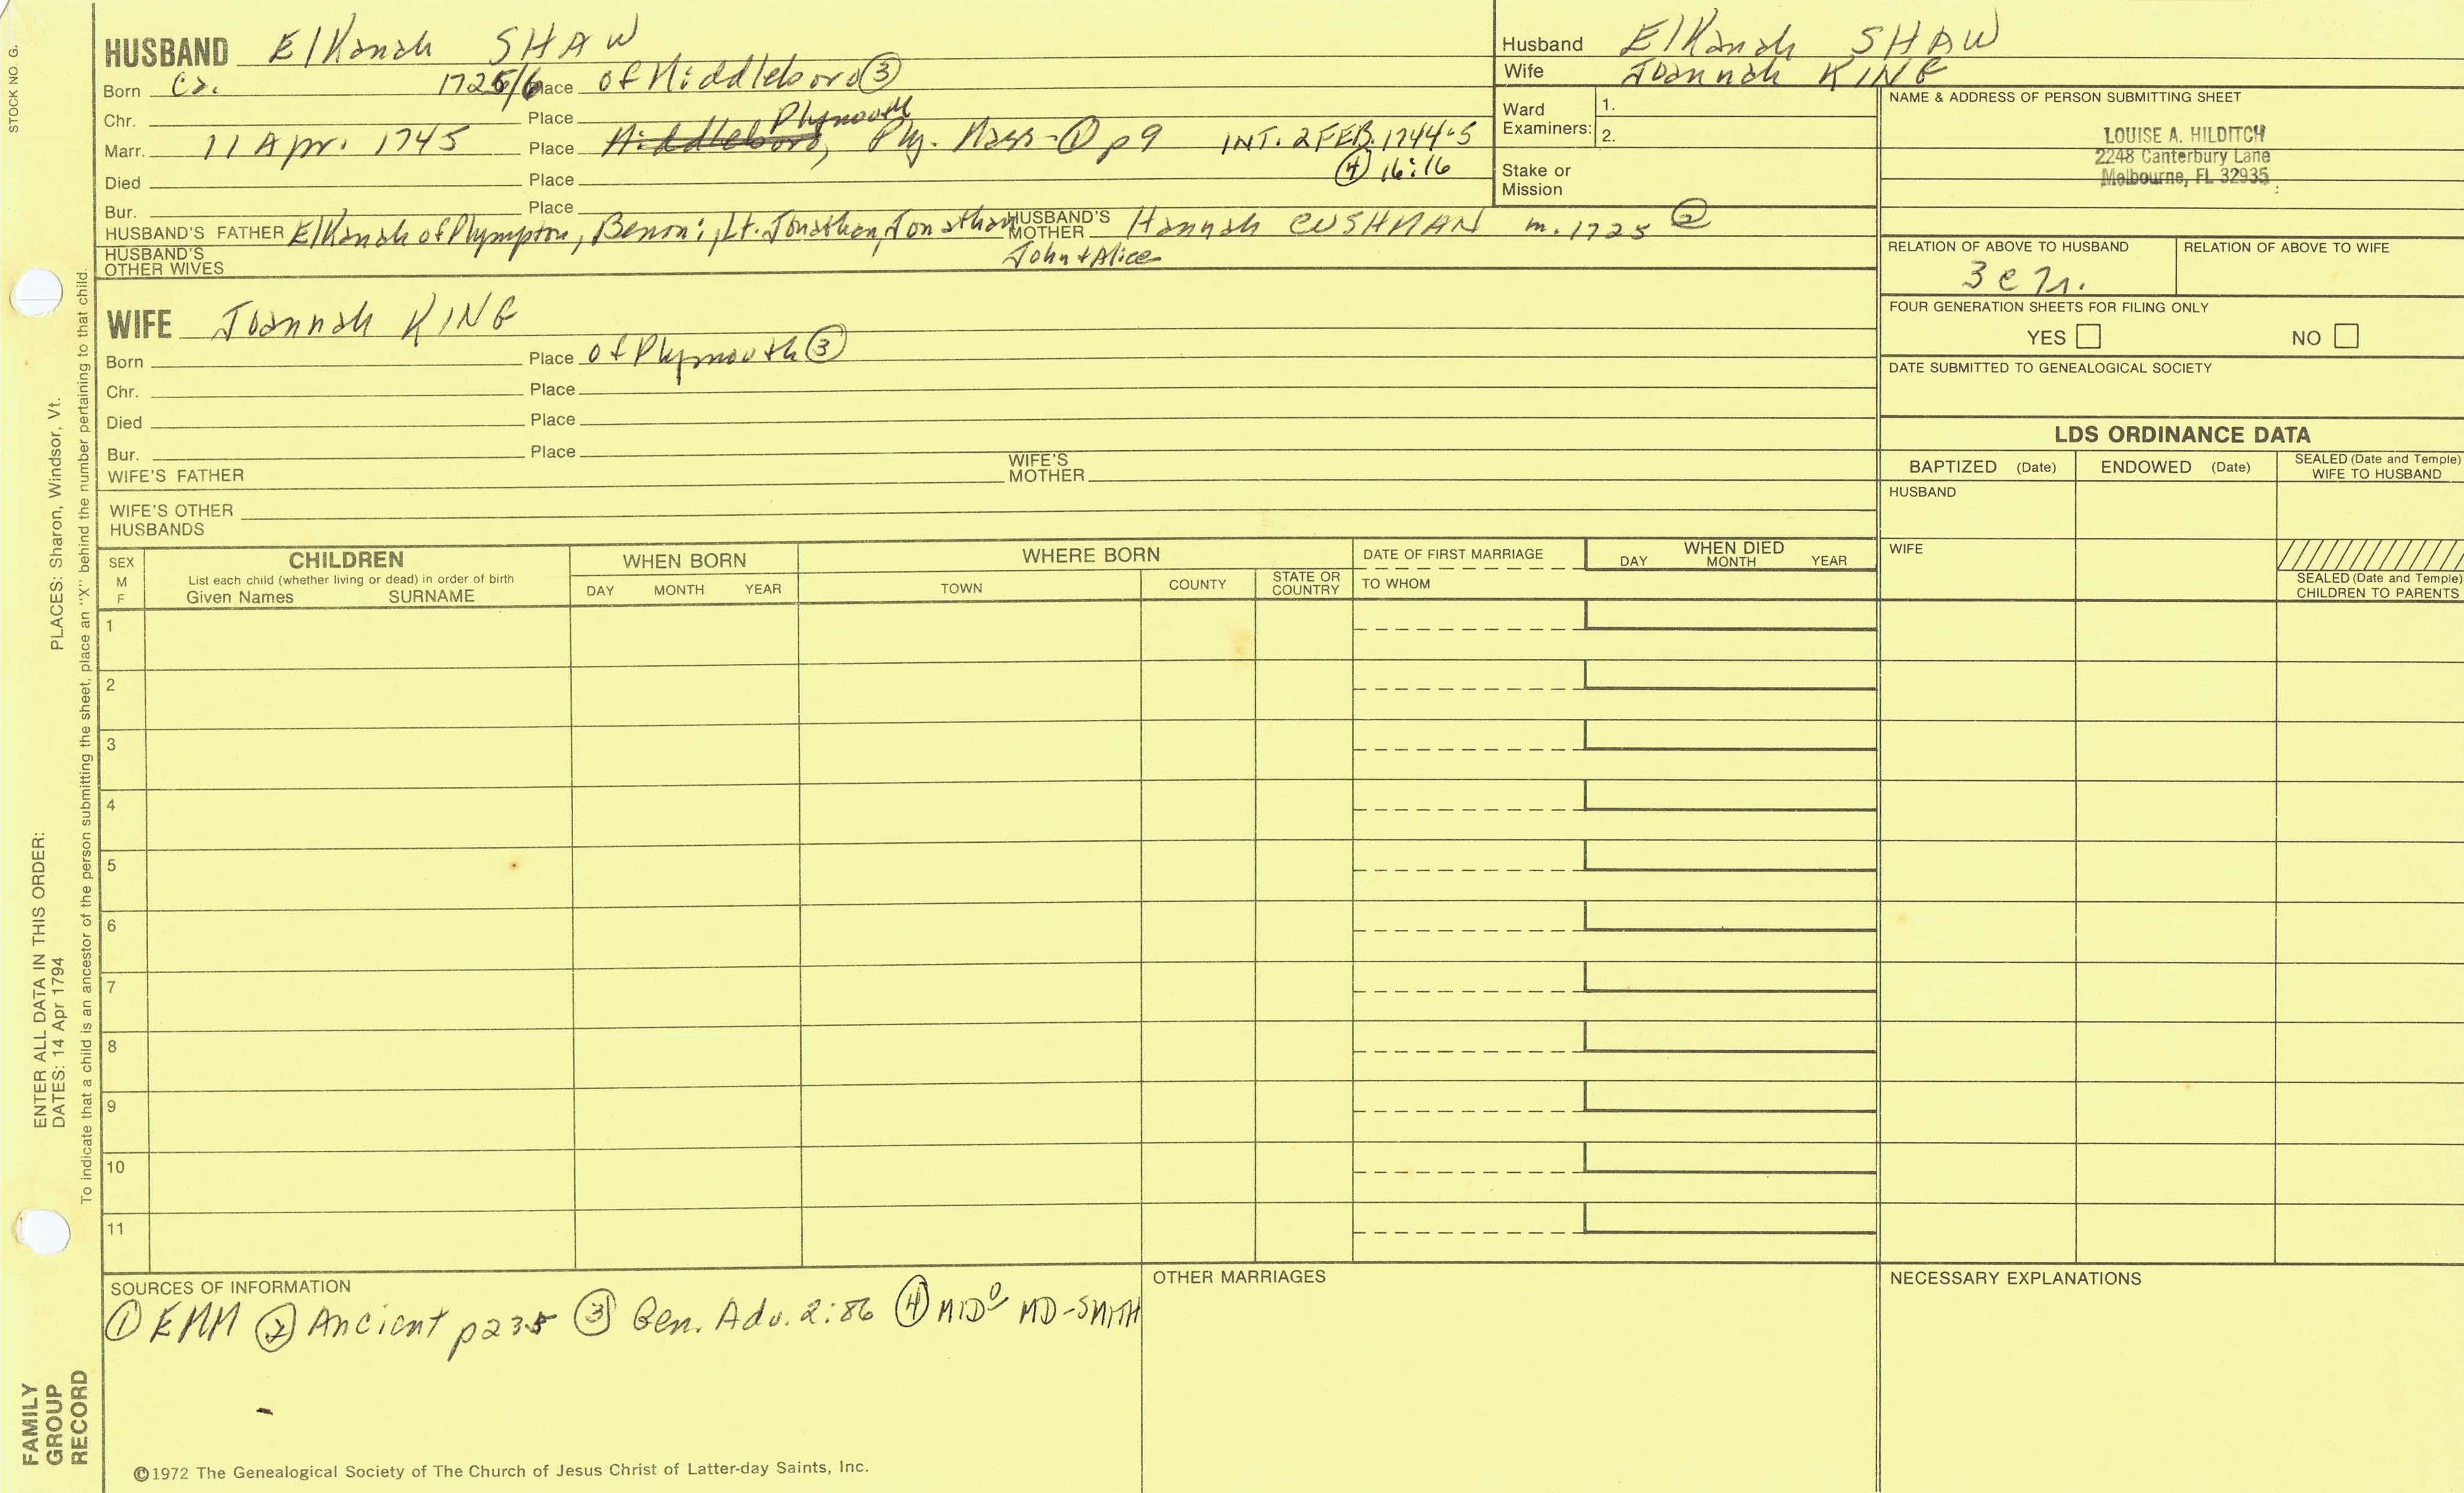 STOCK NO. G.
HUSBAND ElKanah SHAW
Born Ca. 1725/6 Place of Middleboro ③
Chr. Place Plymouth
Marr. 11 Apr. 1745 Place Middleboro, Ply. Mass - ① p9 INT. 2 FEB. 1744-5
Died Place ④ 16:16
Bur. Place
HUSBAND'S FATHER ElKanah of Plympton, Benoni, Lt. Jonathan, Jonathan HUSBAND'S MOTHER Hannah CUSHMAN m. 1725 ②
HUSBAND'S OTHER WIVES John + Alice
WIFE Joannah KING
Born Place of Plymouth ③
Chr. Place
Died Place
Bur. Place
WIFE'S FATHER WIFE'S MOTHER
WIFE'S OTHER HUSBANDS
Husband ElKanah SHAW
Wife Joannah KING
Ward Examiners: 1.
2.
Stake or Mission
NAME & ADDRESS OF PERSON SUBMITTING SHEET
LOUISE A. HILDITCH
2248 Canterbury Lane
Melbourne, FL 32935
RELATION OF ABOVE TO HUSBAND RELATION OF ABOVE TO WIFE
3 c 7r.
FOUR GENERATION SHEETS FOR FILING ONLY
YES NO
DATE SUBMITTED TO GENEALOGICAL SOCIETY
LDS ORDINANCE DATA
BAPTIZED (Date) ENDOWED (Date) SEALED (Date and Temple) WIFE TO HUSBAND
HUSBAND
WIFE
SEALED (Date and Temple) CHILDREN TO PARENTS
SEX M F
CHILDREN
List each child (whether living or dead) in order of birth
Given Names SURNAME
WHEN BORN
DAY MONTH YEAR
WHERE BORN
TOWN COUNTY STATE OR COUNTRY
DATE OF FIRST MARRIAGE
TO WHOM
WHEN DIED
DAY MONTH YEAR
1
2
3
4
5
6
7
8
9
10
11
SOURCES OF INFORMATION
① EMM ② Ancient p235 ③ Gen. Adv. 2:86 ④ MIDº MD-SMITH
OTHER MARRIAGES
NECESSARY EXPLANATIONS
©1972 The Genealogical Society of The Church of Jesus Christ of Latter-day Saints, Inc.
FAMILY
GROUP
RECORD
ENTER ALL DATA IN THIS ORDER:
DATES: 14 Apr 1794 PLACES: Sharon, Windsor, Vt.
To indicate that a child is an ancestor of the person submitting the sheet, place an "X" behind the number pertaining to that child.